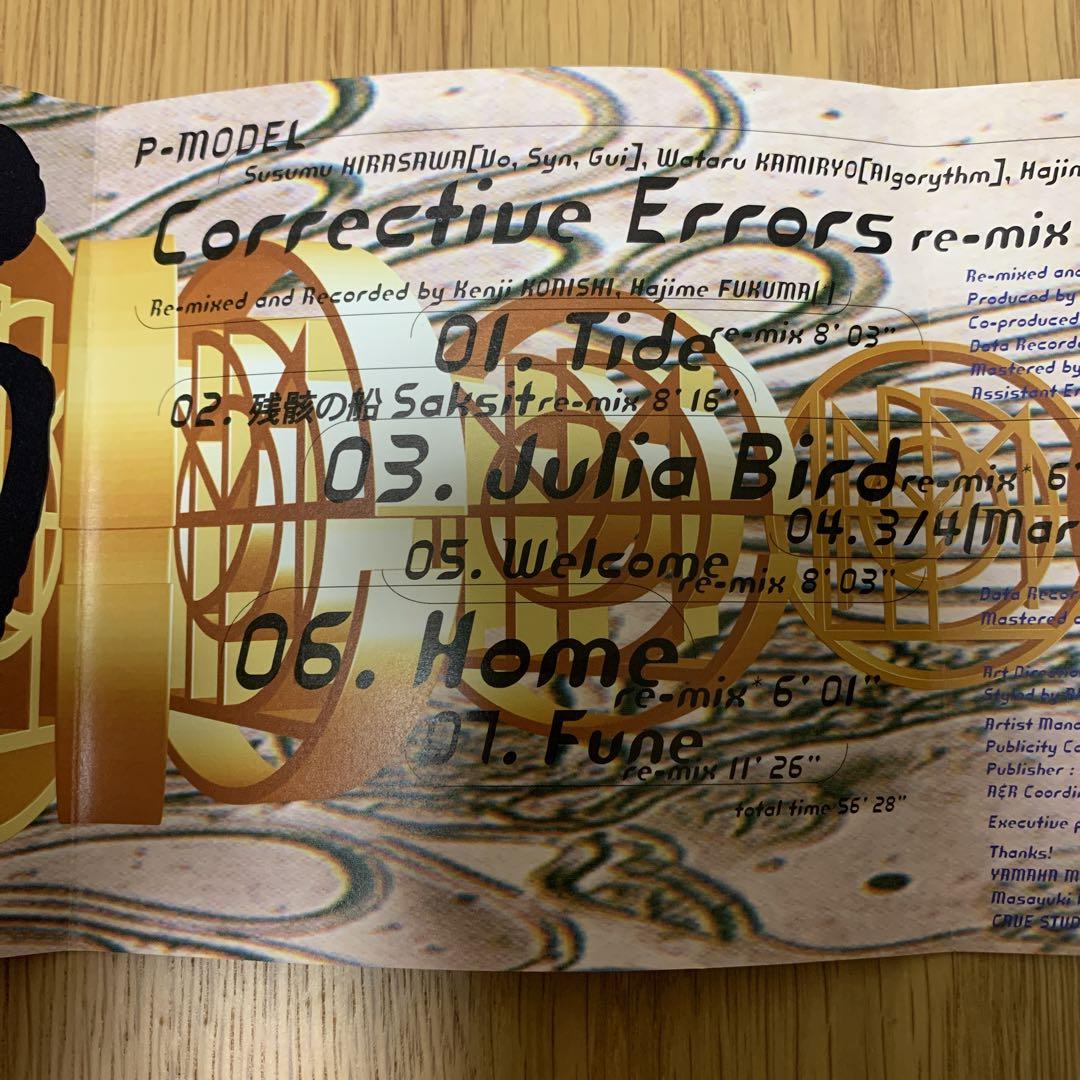 P-MODEL
Susumu HIRASAWA[Vo, Syn, Gui], Wataru KAMIRYO[Algorythm], Hajim
Corrective Errors re-mix
Re-mixed and Recorded by Kenji KONISHI, Hajime FUKUMA[ ]
01. Tide re-mix 8' 03"
02. 残骸の船 Saksit re-mix 8' 16"
03. Julia Bird re-mix* 6'
04. 3/4[Mar
05. Welcome re-mix 8' 03"
06. Home re-mix* 6' 01"
07. Fune re-mix 11' 26"
total time 56' 28"
Re-mixed and
Produced by
Co-produced
Data Recorde
Mastered by
Assistant En
Data Recor
Mastered a
Art Directio
Styled by
Artist Mana
Publicity Co
Publisher :
A&R Coordin
Executive p
Thanks!
YAMAHA M
Masayuki
CAVE STUD